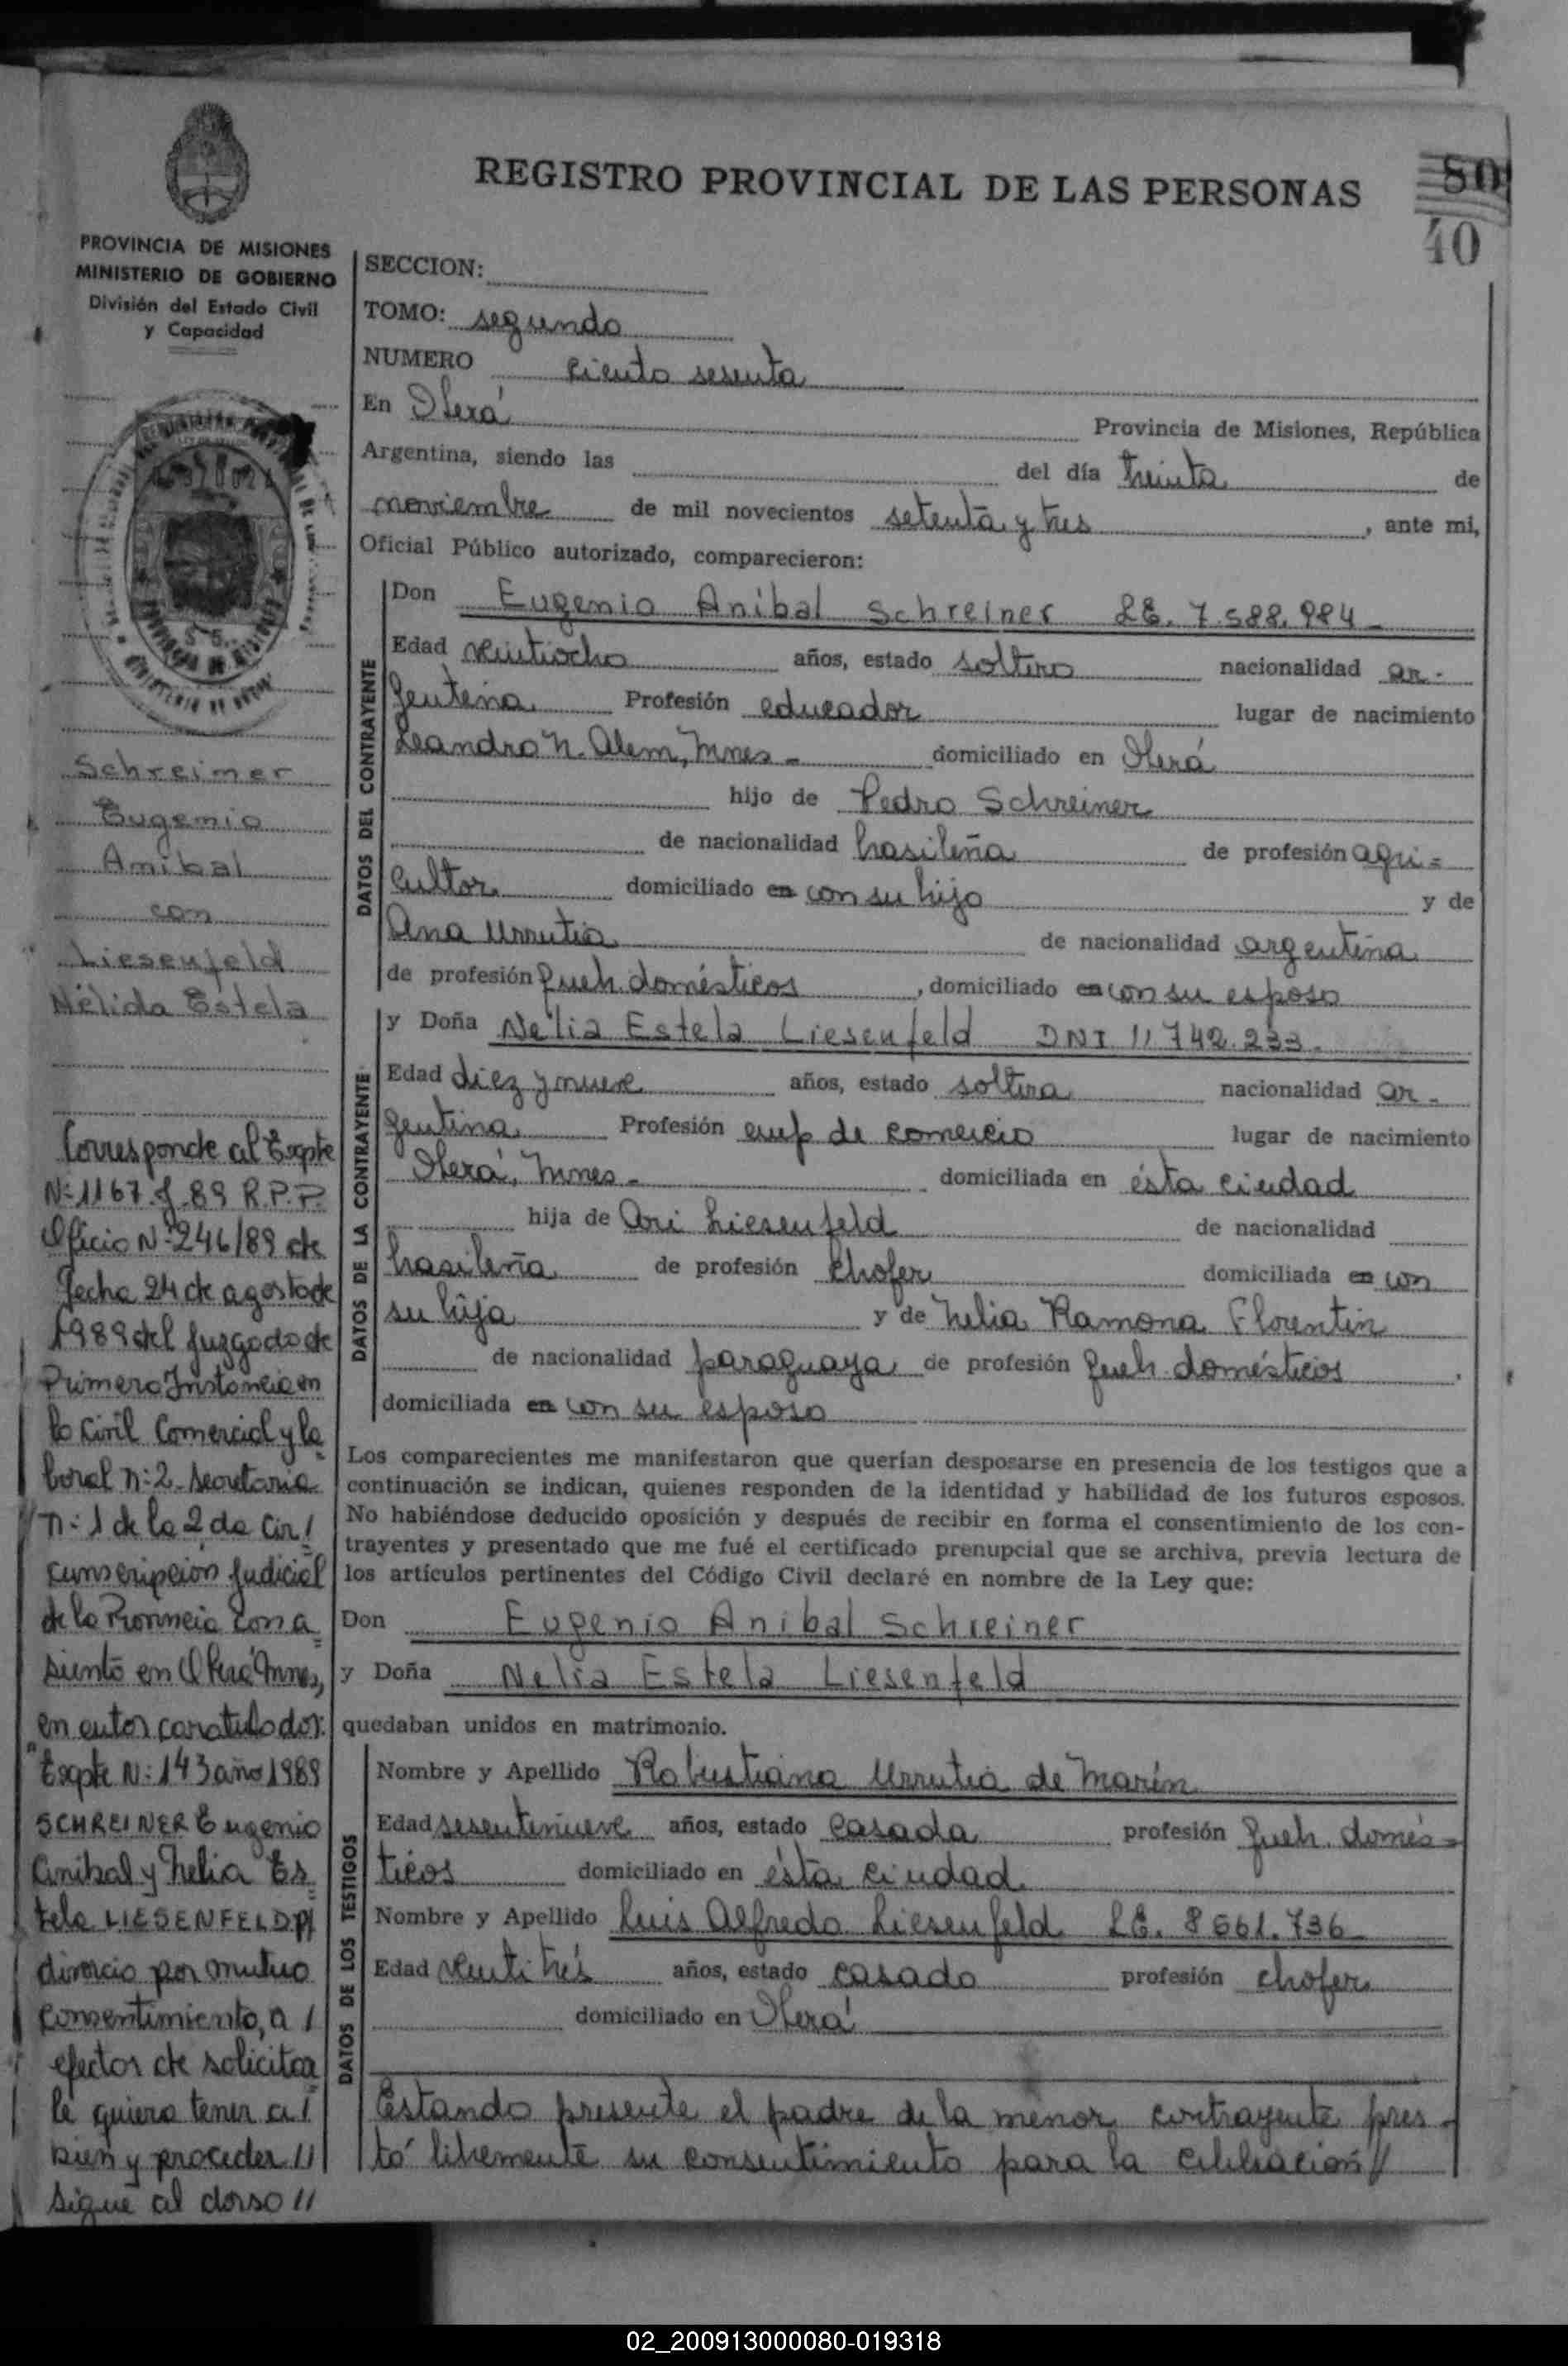 REGISTRO PROVINCIAL DE LAS PERSONAS
80
40
PROVINCIA DE MISIONES
MINISTERIO DE GOBIERNO
División del Estado Civil
y Capacidad
SECCION:
TOMO: segundo
NUMERO ciento sesenta
En Oberá Provincia de Misiones, República
Argentina, siendo las del día treinta de
noviembre de mil novecientos setenta y tres, ante mi,
Oficial Público autorizado, comparecieron:
DATOS DEL CONTRAYENTE
Don Eugenio Anibal Schreiner LE. 7.588.984-
Edad veintiocho años, estado soltero nacionalidad ar-
gentina Profesión educador lugar de nacimiento
Leandro N. Alem, Mnes- domiciliado en Oberá
hijo de Pedro Schreiner
de nacionalidad brasileña de profesión agri=
cultor domiciliado en con su hijo y de
Ana Urrutia de nacionalidad argentina
de profesión queh. domésticos, domiciliado en con su esposo
DATOS DE LA CONTRAYENTE
y Doña Nelia Estela Liesenfeld DNI 11.742.233-
Edad diez y nueve años, estado soltera nacionalidad ar-
gentina Profesión emp de comercio lugar de nacimiento
Oberá, Mnes- domiciliada en ésta ciudad
hija de Ari Liesenfeld de nacionalidad
brasileña de profesión chofer domiciliada en con
su hija y de Nelia Ramona Florentin
de nacionalidad paraguaya de profesión queh. domésticos,
domiciliada en con su esposo
Los comparecientes me manifestaron que querían desposarse en presencia de los testigos que a
continuación se indican, quienes responden de la identidad y habilidad de los futuros esposos.
No habiéndose deducido oposición y después de recibir en forma el consentimiento de los con-
trayentes y presentado que me fué el certificado prenupcial que se archiva, previa lectura de
los artículos pertinentes del Código Civil declaré en nombre de la Ley que:
Don Eugenio Anibal Schreiner
y Doña Nelia Estela Liesenfeld
quedaban unidos en matrimonio.
DATOS DE LOS TESTIGOS
Nombre y Apellido Robustiana Urrutia de Marín
Edad sesentinueve años, estado casada profesión queh. domés=
ticos domiciliado en ésta ciudad
Nombre y Apellido Luis Alfredo Liesenfeld LE. 8561.736-
Edad veintitrés años, estado casado profesión chofer
domiciliado en Oberá
Estando presente el padre de la menor contrayente pres-
tó libremente su consentimiento para la celebración//
Schreiner
Eugenio
Anibal
con
Liesenfeld
Nélida Estela
Corresponde al Expte
N:1167.J.89 R.P.P.
Oficio N:246/89 de
fecha 24 de agosto de
1989 del Juzgado de
Primera Instancia en
lo Civil Comercial y la
boral n:2-secretaria
n:1 de la 2 da Cir/
cunscripción Judicial
de la Provincia con a
siento en Oberá Mnes,
en autos caratulados:
"Expte N:143 año 1989
SCHREINER Eugenio
Anibal y Nelia Es
tela LIESENFELD p/
divorcio por mutuo
consentimiento, a /
efectos de solicitar
le quiera tener a/
bien y proceder //
sigue al dorso //
02_200913000080-019318